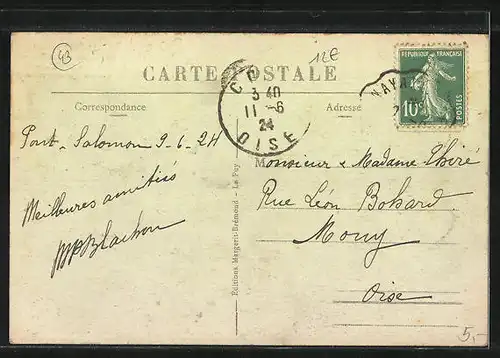 43
12€
CARTE POSTALE
RÉPUBLIQUE FRANÇAISE
10c
POSTES
3 40
11 - 6
24
OISE
Correspondance
Adresse
Pont-Salomon 9-6-24
Monsieur & Madame Thiré
Meilleures amitiés
Rue Léon Bohard
Mouy
Oise
Editions Margerit-Brémond - Le Puy
5.-